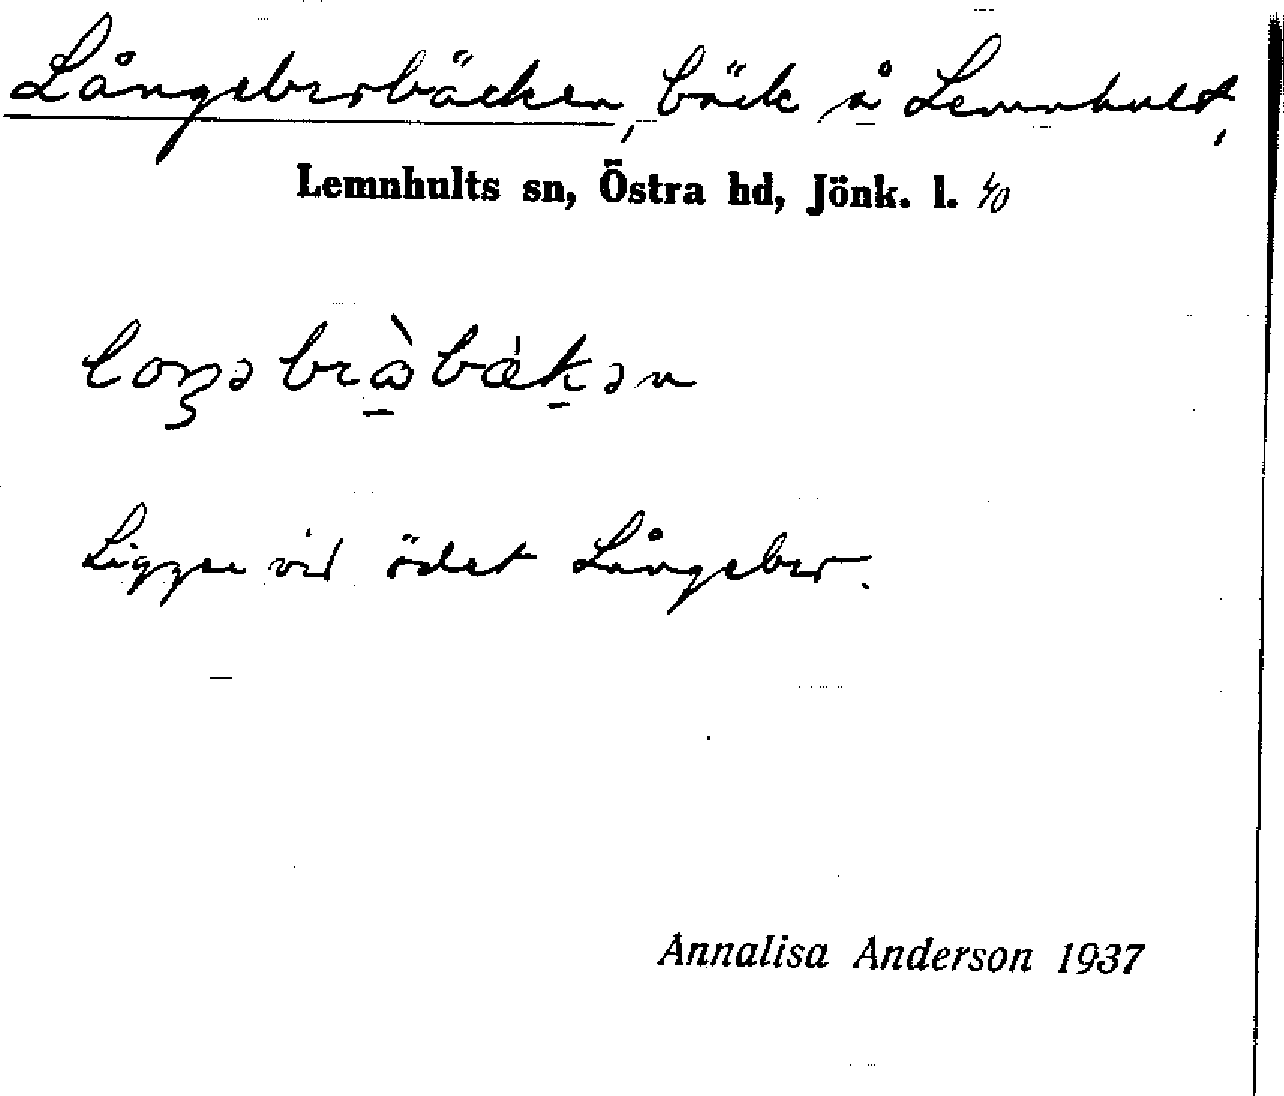 Långebrobäcken, bäck å Lemnhult,
Lemnhults sn, Östra hd, Jönk. l. 40
Ligger vid ödet Långebro.
Annalisa Anderson 1937